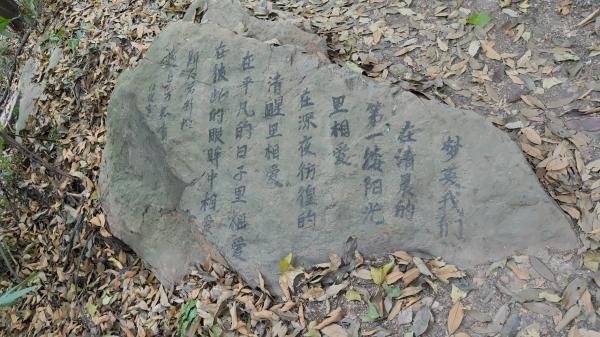 梦英我们
在清晨的
第一缕阳光
里相爱
在深夜彷徨的
清醒里相爱
在平凡的日子里相爱
在彼此的眼眸中相爱